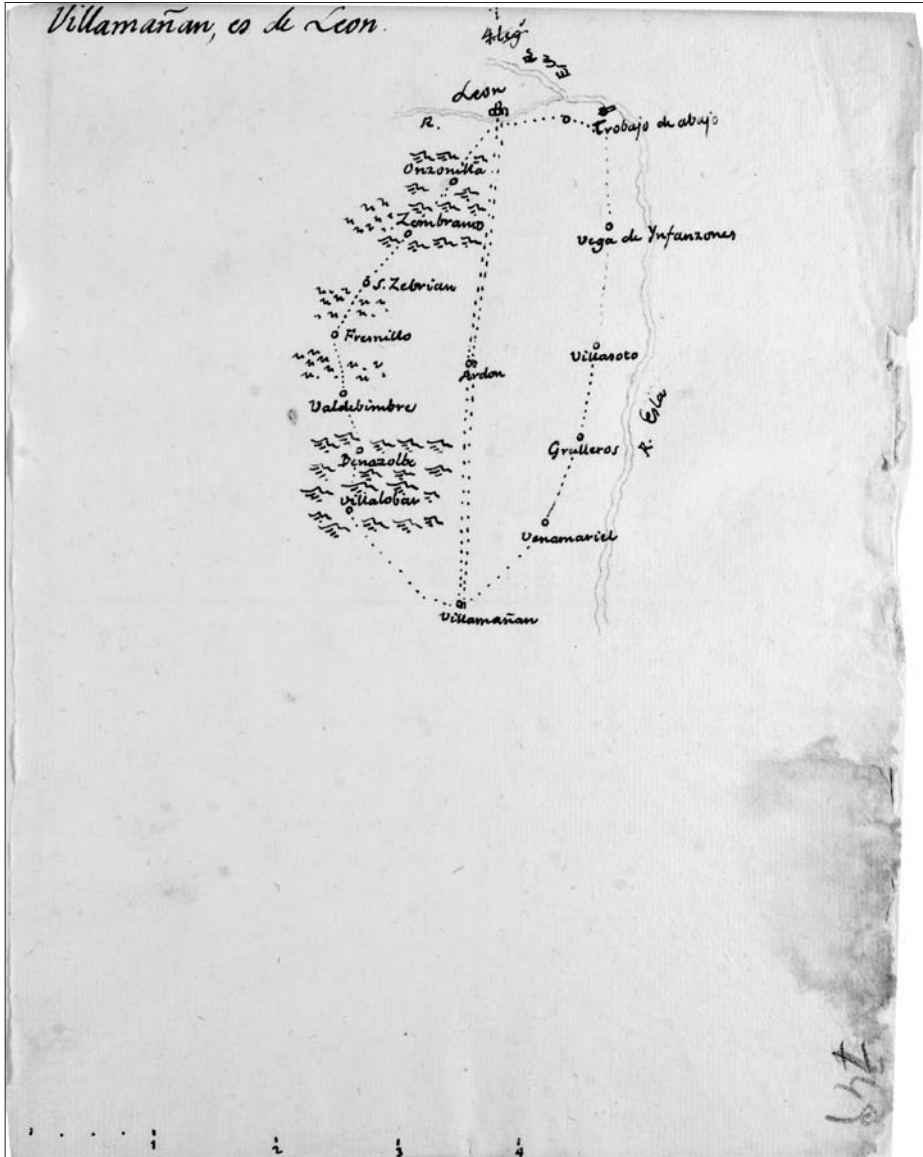 Villamañan, es de Leon.
4 leg
Leon
R.
Trobajo de abajo
Onzonilla
Zembranos
Vega de Ynfanzones
S. Zebrian
Fresnillo
Villasoto
Ardon
Valdebimbre
R. Esla
Grulleros
Benazolbe
Villalobar
Venamariel
Villamañan
1
2
3
4